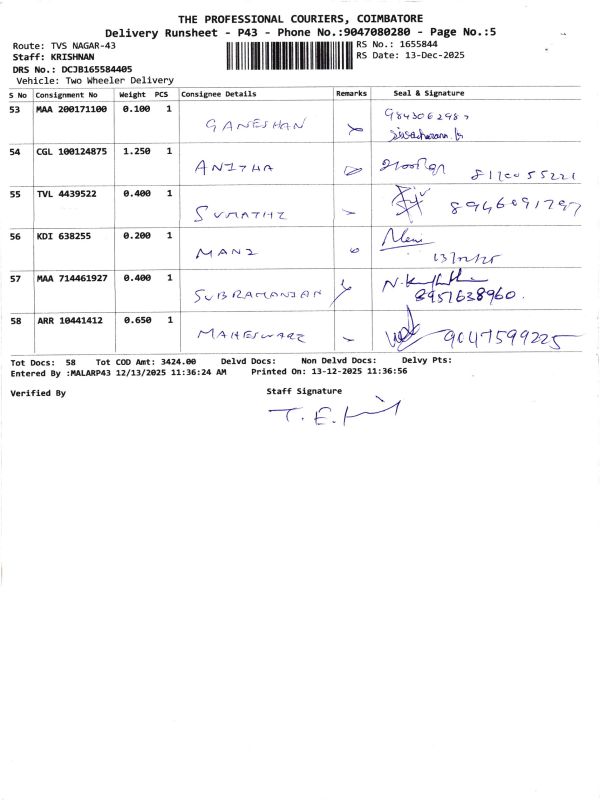 THE PROFESSIONAL COURIERS, COIMBATORE
Delivery Runsheet - P43 - Phone No.:9047080280 - Page No.:5
Route: TVS NAGAR-43 RS No.: 1655844
Staff: KRISHNAN RS Date: 13-Dec-2025
DRS No.: DCJB165584405
Vehicle: Two Wheeler Delivery
S No Consignment No Weight PCS Consignee Details Remarks Seal & Signature
53 MAA 200171100 0.100 1 GANESHAN
54 CGL 100124875 1.250 1 ANITHA 8120055221
55 TVL 4439522 0.400 1 SUMATHI 8946091797
56 KDI 638255 0.200 1 MANI Mani
13/12/25
57 MAA 714461927 0.400 1 SUBRAMANIAN
8951638960.
58 ARR 10441412 0.650 1 MAHESWARI 9047599225
Tot Docs: 58 Tot COD Amt: 3424.00 Delvd Docs: Non Delvd Docs: Delvy Pts:
Entered By :MALARP43 12/13/2025 11:36:24 AM Printed On: 13-12-2025 11:36:56
Verified By Staff Signature